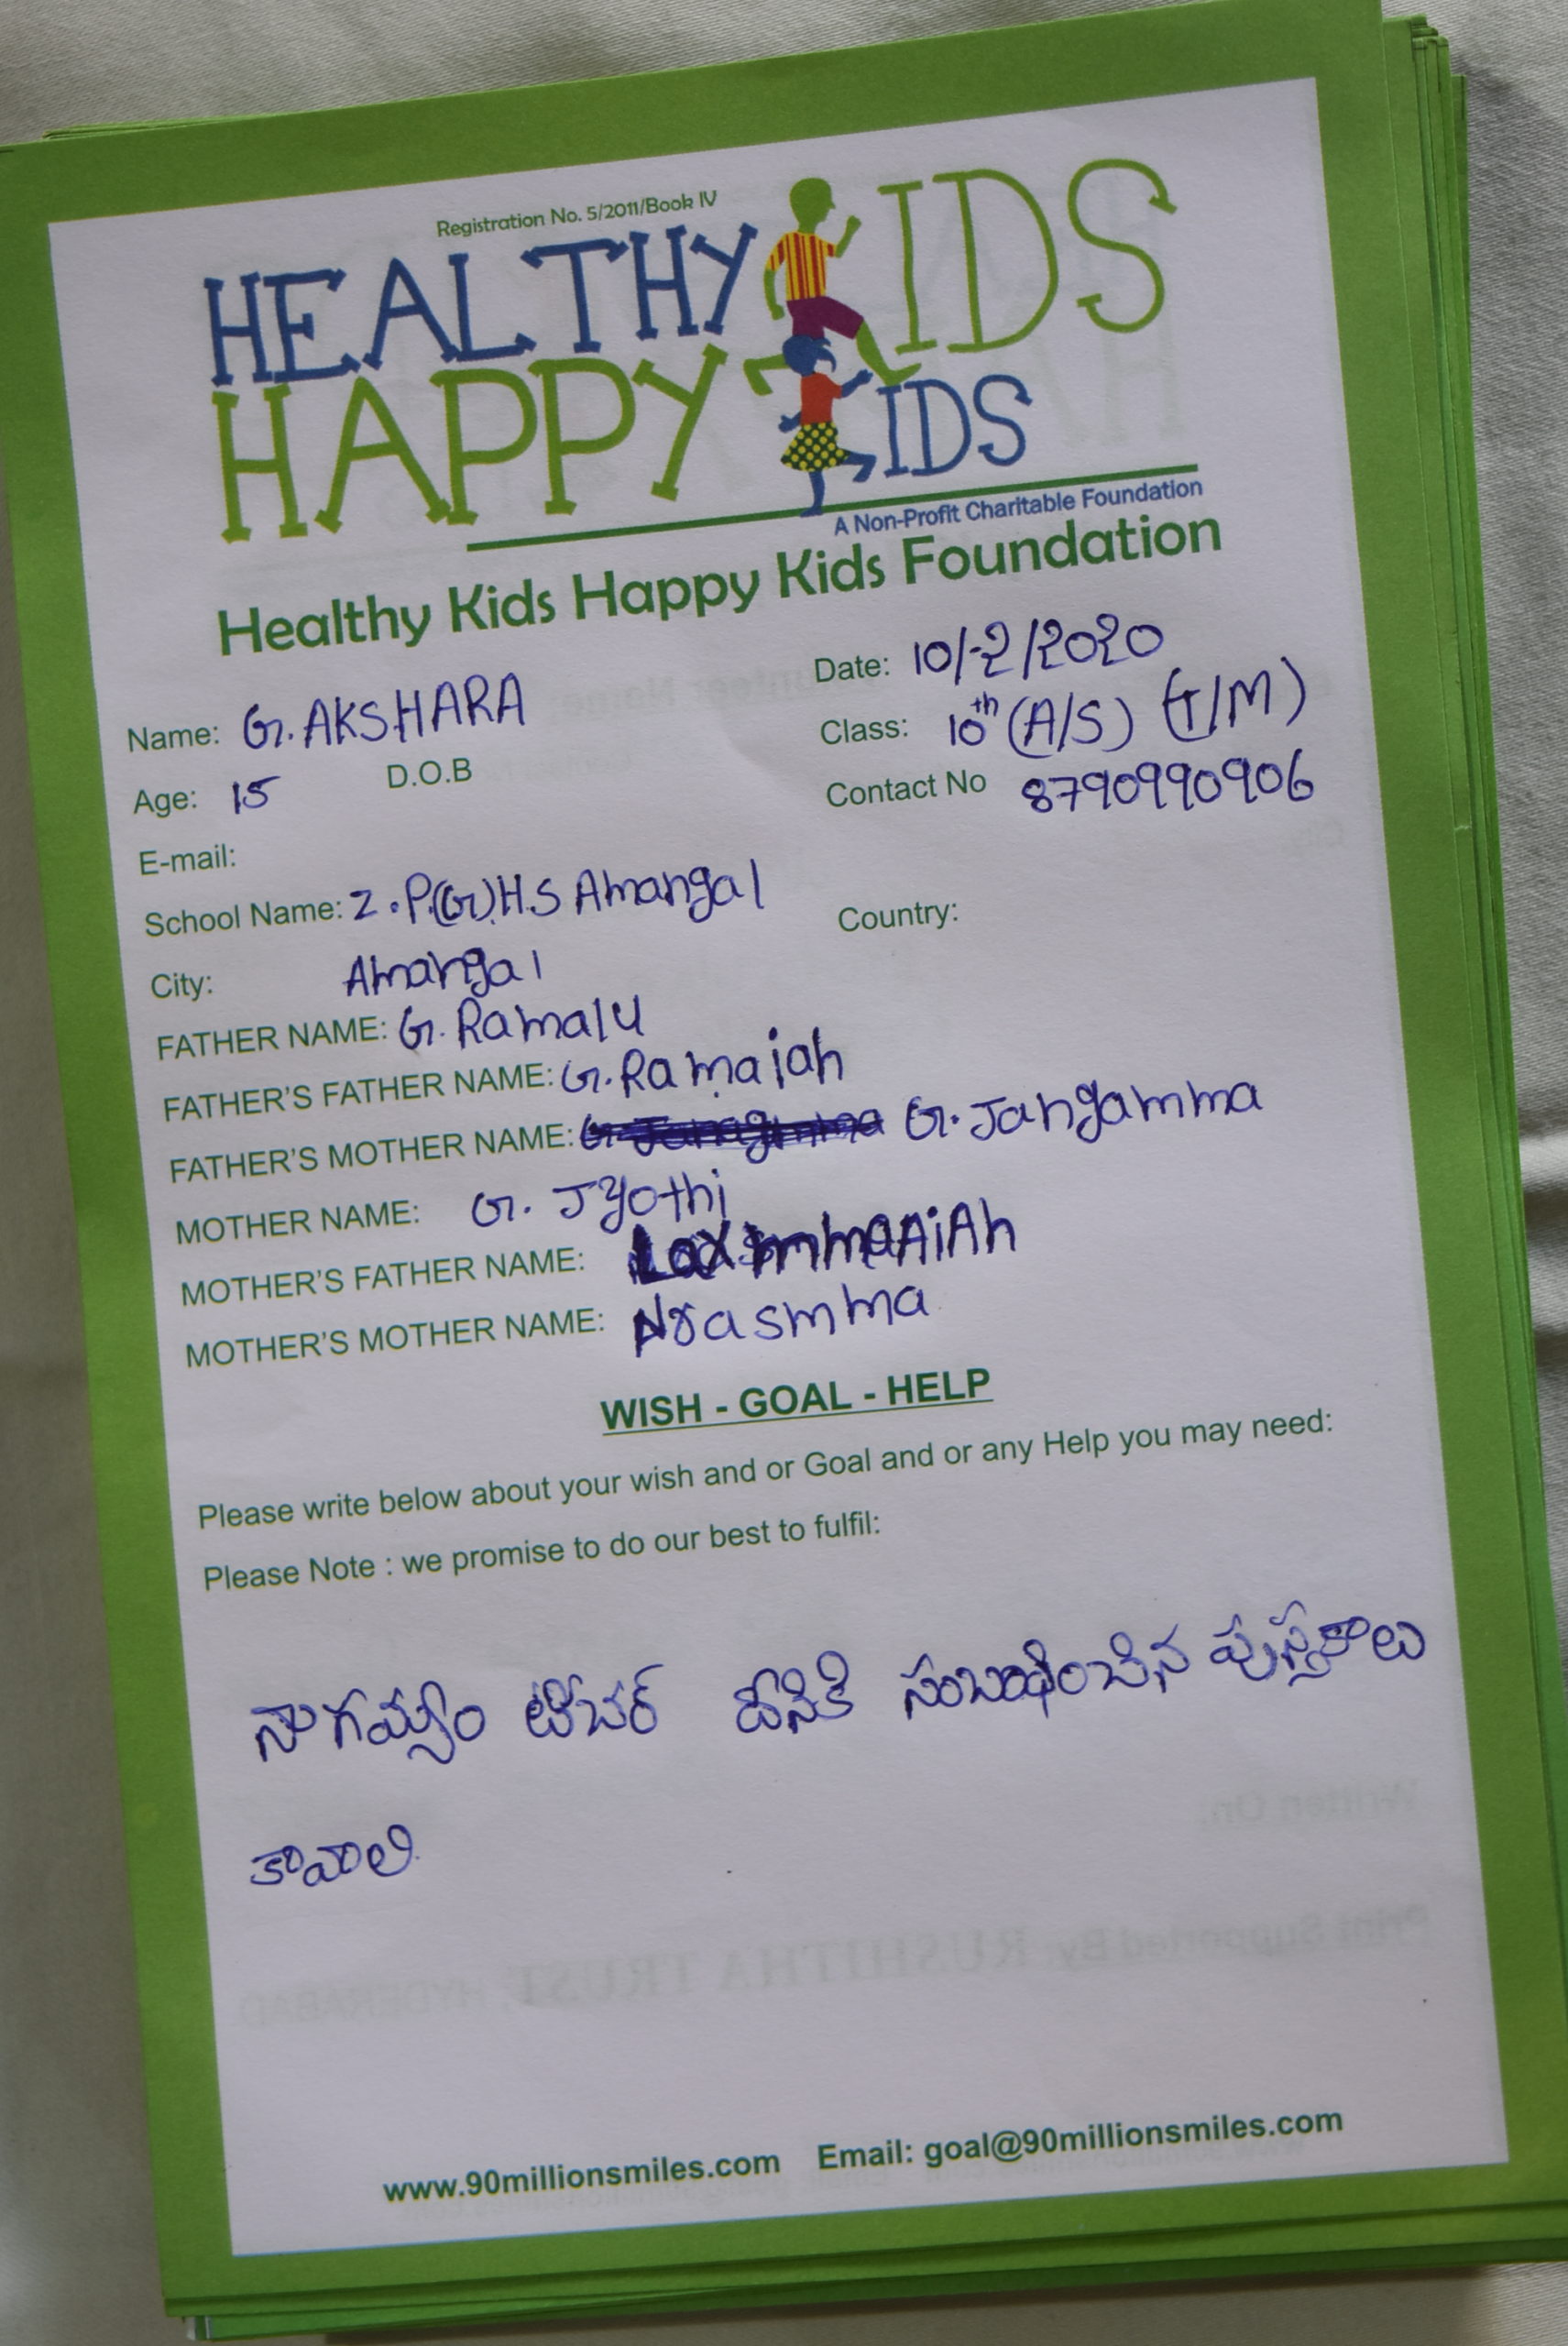 Registration No. 5/2011/Book IV
HEALTHY KIDS
HAPPY KIDS
A Non-Profit Charitable Foundation
Healthy Kids Happy Kids Foundation
Date: 10/-2/2020
Name: G. AKSHARA
Class: 10th (A/S) (T/M)
Age: 15 D.O.B
Contact No 8790990906
E-mail:
School Name: Z.P.(G).H.S Amangal
Country:
City: Amangal
FATHER NAME: G. Ramalu
FATHER'S FATHER NAME: G. Ramaiah
FATHER'S MOTHER NAME: G. Jangamma
MOTHER NAME: G. Jyothi
MOTHER'S FATHER NAME:
MOTHER'S MOTHER NAME: Nrasmma
WISH - GOAL - HELP
Please write below about your wish and or Goal and or any Help you may need:
Please Note : we promise to do our best to fulfil:
నాగమ్యం టీచర్ దీనికి సంబంధించిన పుస్తకాలు
కావాలి
www.90millionsmiles.com Email: goal@90millionsmiles.com